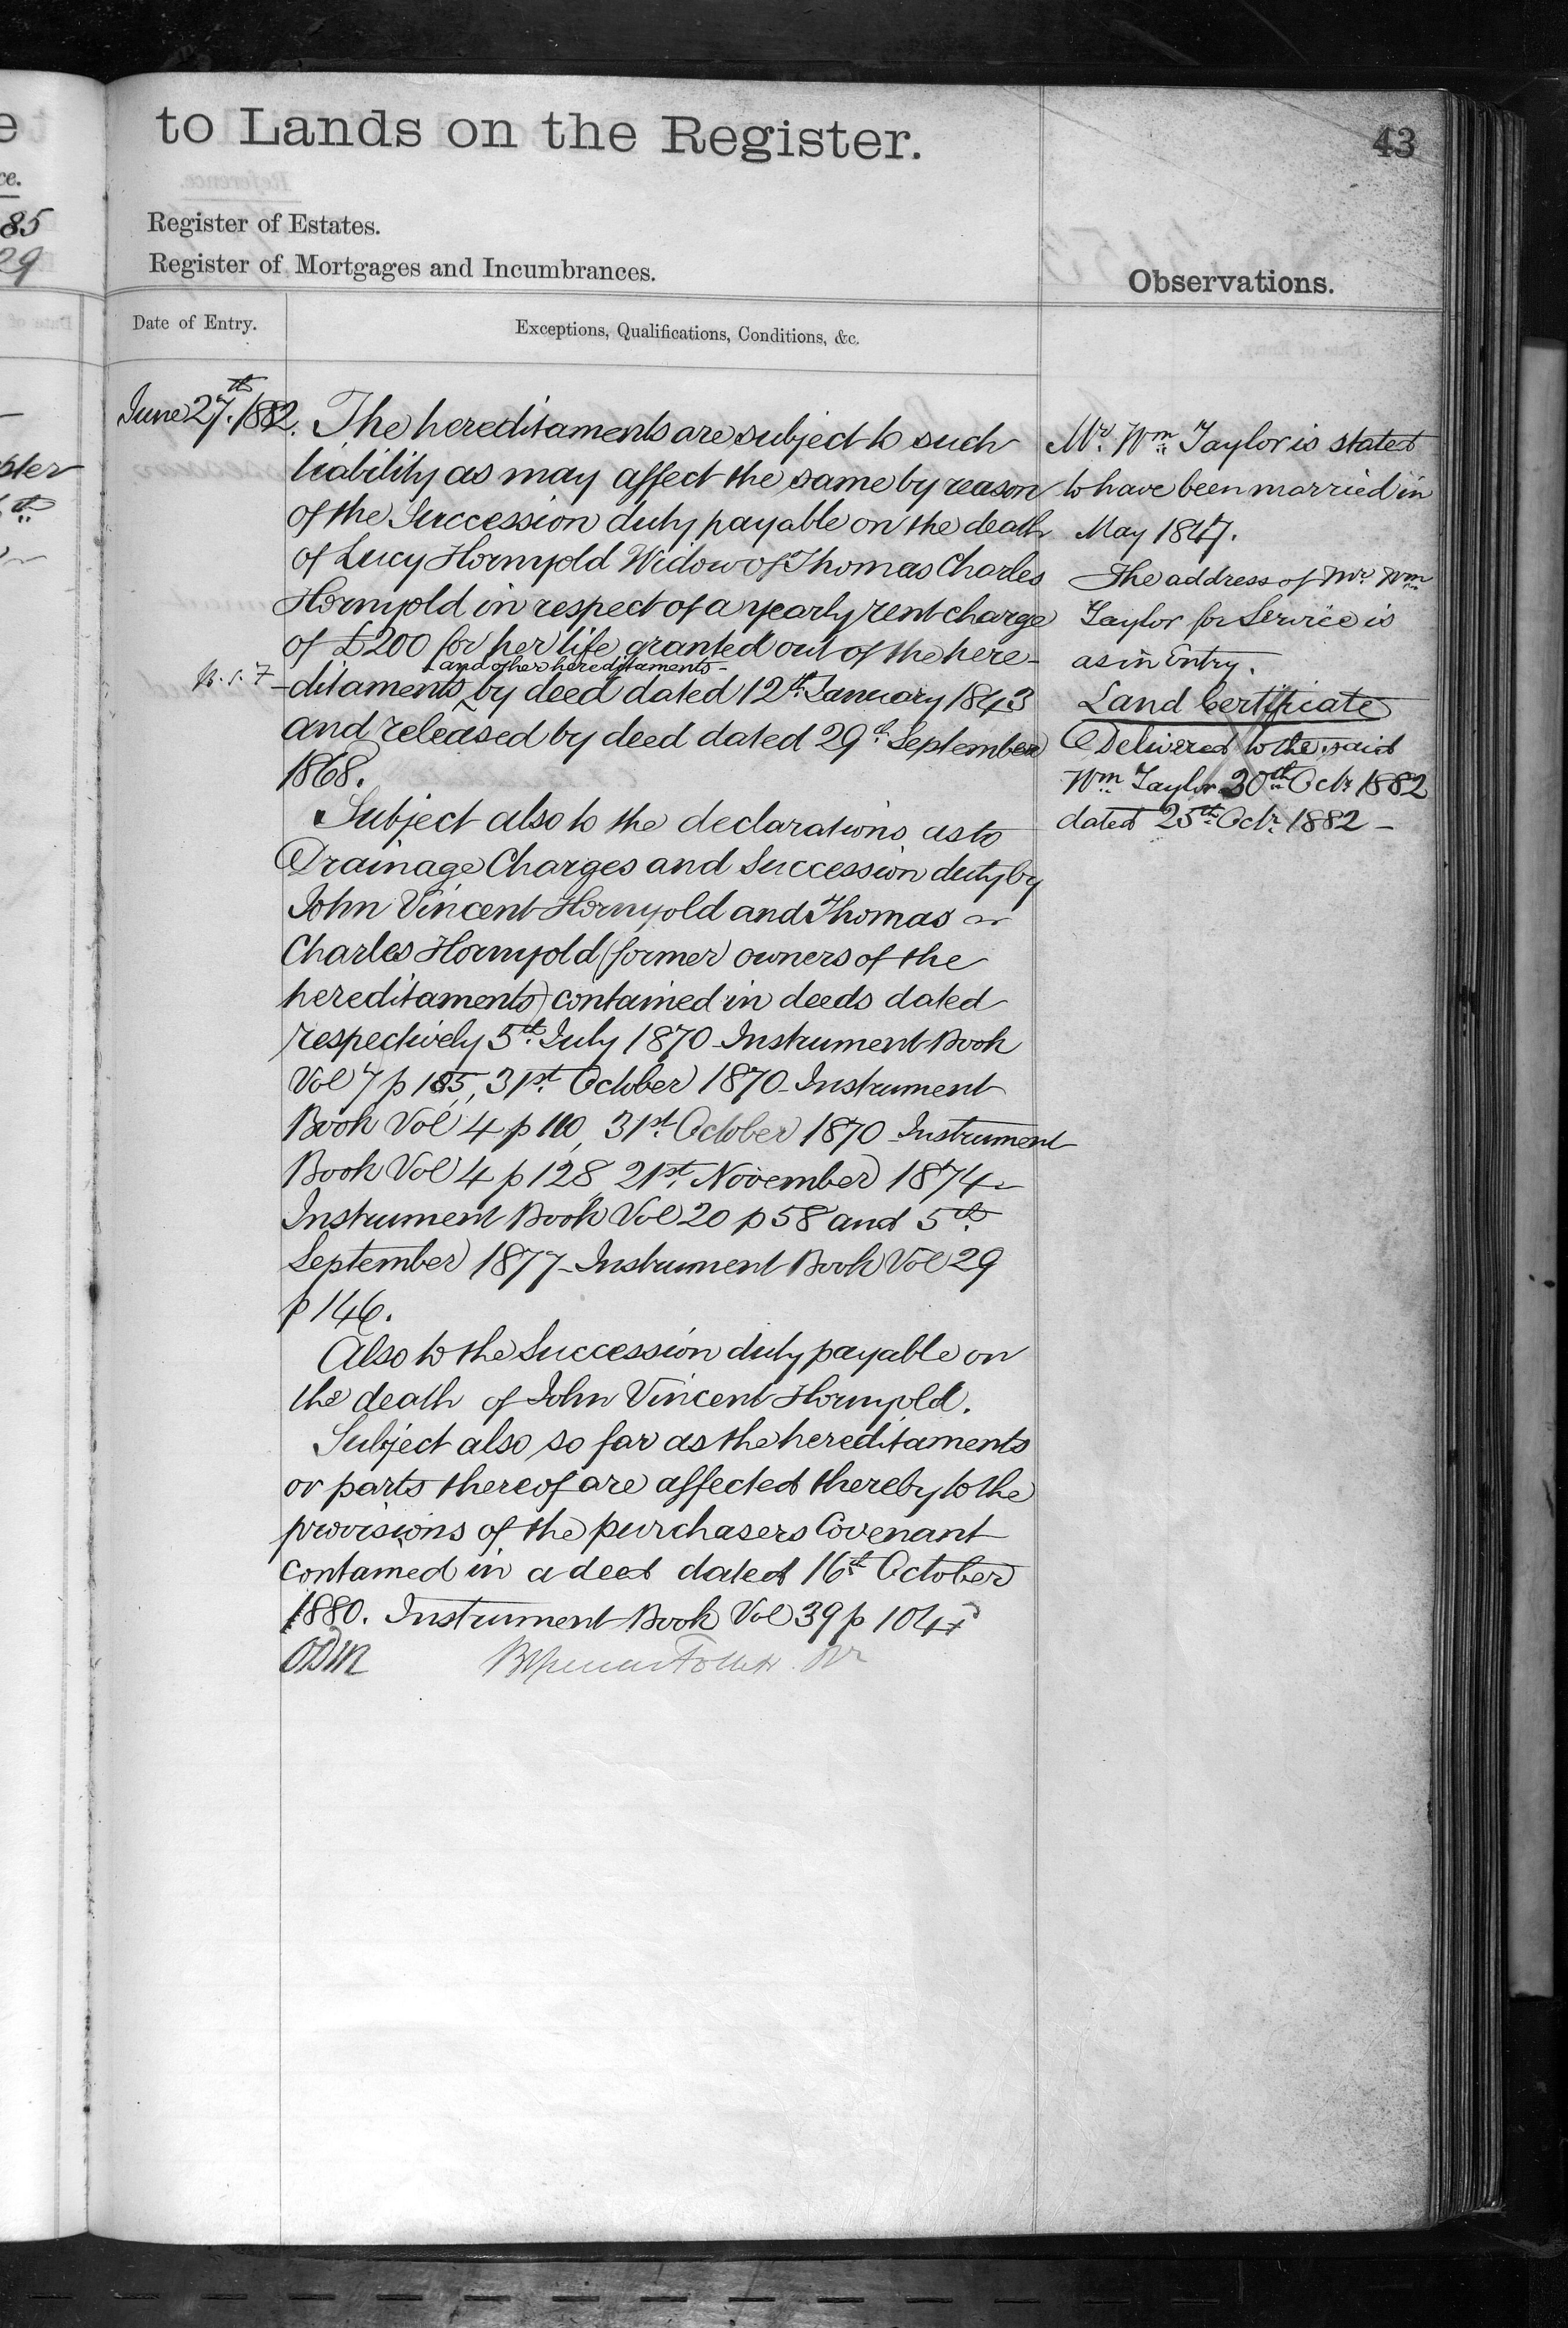 to Lands on the Register.
43
Register of Estates.
Register of Mortgages and Incumbrances.
Observations.
Date of Entry.
Exceptions, Qualifications, Conditions, &c.
June 27th. 1882.
The hereditaments are subject to such
liability as may affect the same by reason
of the Succession duty payable on the death
of Lucy Hornyold Widow of Thomas Charles
Hornyold in respect of a yearly rent charge
of £200 for her life granted out of the here-
and other hereditaments
ditaments by deed dated 12th. January 1843
and released by deed dated 29th. September
1868.
Subject also to the declarations as to
Drainage Charges and Succession duty by
John Vincent Hornyold and Thomas
Charles Hornyold (former owners of the
hereditaments) contained in deeds dated
respectively 5th. July 1870 Instrument Book
Vol 7 p 185, 31st. October 1870 Instrument
Book Vol 4 p 110, 31st. October 1870 Instrument
Book Vol 4 p 128, 21st. November 1874
Instrument Book Vol 20 p 58 and 5th.
September 1877 Instrument Book Vol 29
p 146.
Also to the Succession duty payable on
the death of John Vincent Hornyold.
Subject also so far as the hereditaments
or parts thereof are affected thereby to the
provisions of the purchasers Covenant
contained in a deed dated 16th October
1880. Instrument Book Vol 39 p 104
Mr. Wm Taylor is stated
to have been married in
May 1847.
The address of Mr. Wm
Taylor for Service is
as in Entry.
Land Certificate
Delivered to the said
Wm Taylor 30th Octr 1882
dated 25th Octr. 1882 -
85
29